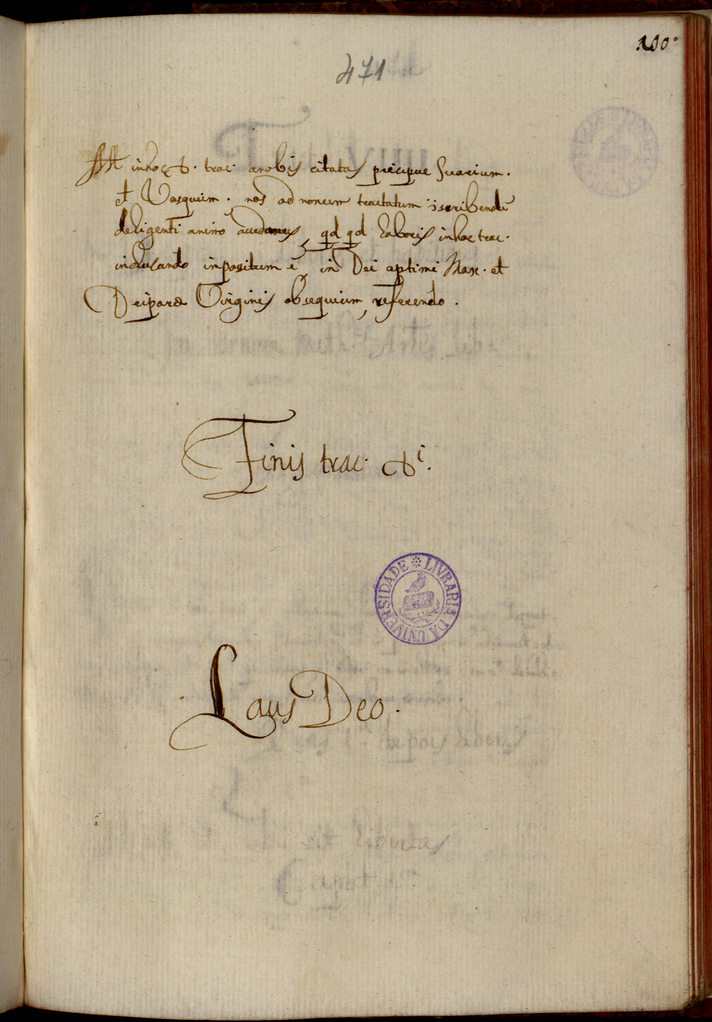 471
100
in hoc 8. trac. a nobis citatos precipue Suarium.
et Vasquium. nos ad nonum tractatum scribendū
deligenti animo qd qd laboris in hoc trac.
impositum ē, in Dei optimi Max. et
Deiparæ Virginis obsequium, referendo.
Finis trac. 8i.
LIVRARIA DA UNIVERSIDADE
Laus Deo.